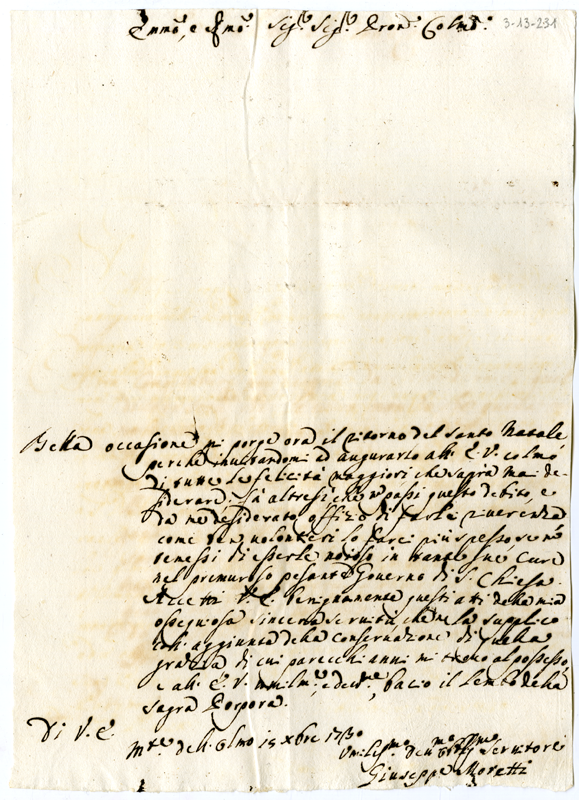 3-13-231
Emmo, e Rmo Sigr Sigr Pron Colmo
Bella occasione mi porge ora il ritorno del Santo Natale
perche inoltrandomi ad augurarlo all' E. V. colmo
di tutte le felicità maggiori che saprà mai de-
siderare, fà altresi che passi questo debito, e
da me desiderato offizio di farle riverenza
come ben volontieri lo farei più spesso se non
temessi di esserle noioso in tante sue Cure
nel premuroso pesante Governo di S. Chiesa.
Accetti V. E. benignamente questi atti della mia
ossequiosa sincera servitù che la supplico
coll' aggiunta della conservazione di quella
grazia di cui parecchi anni mi trovo al possesso,
e all' E. V. umilme, e bacio il Lembo della
sagra Porpora.
Di V. E.
Mte dell' Olmo 15 Xbre 1730
Servitore
Giuseppe Moretti